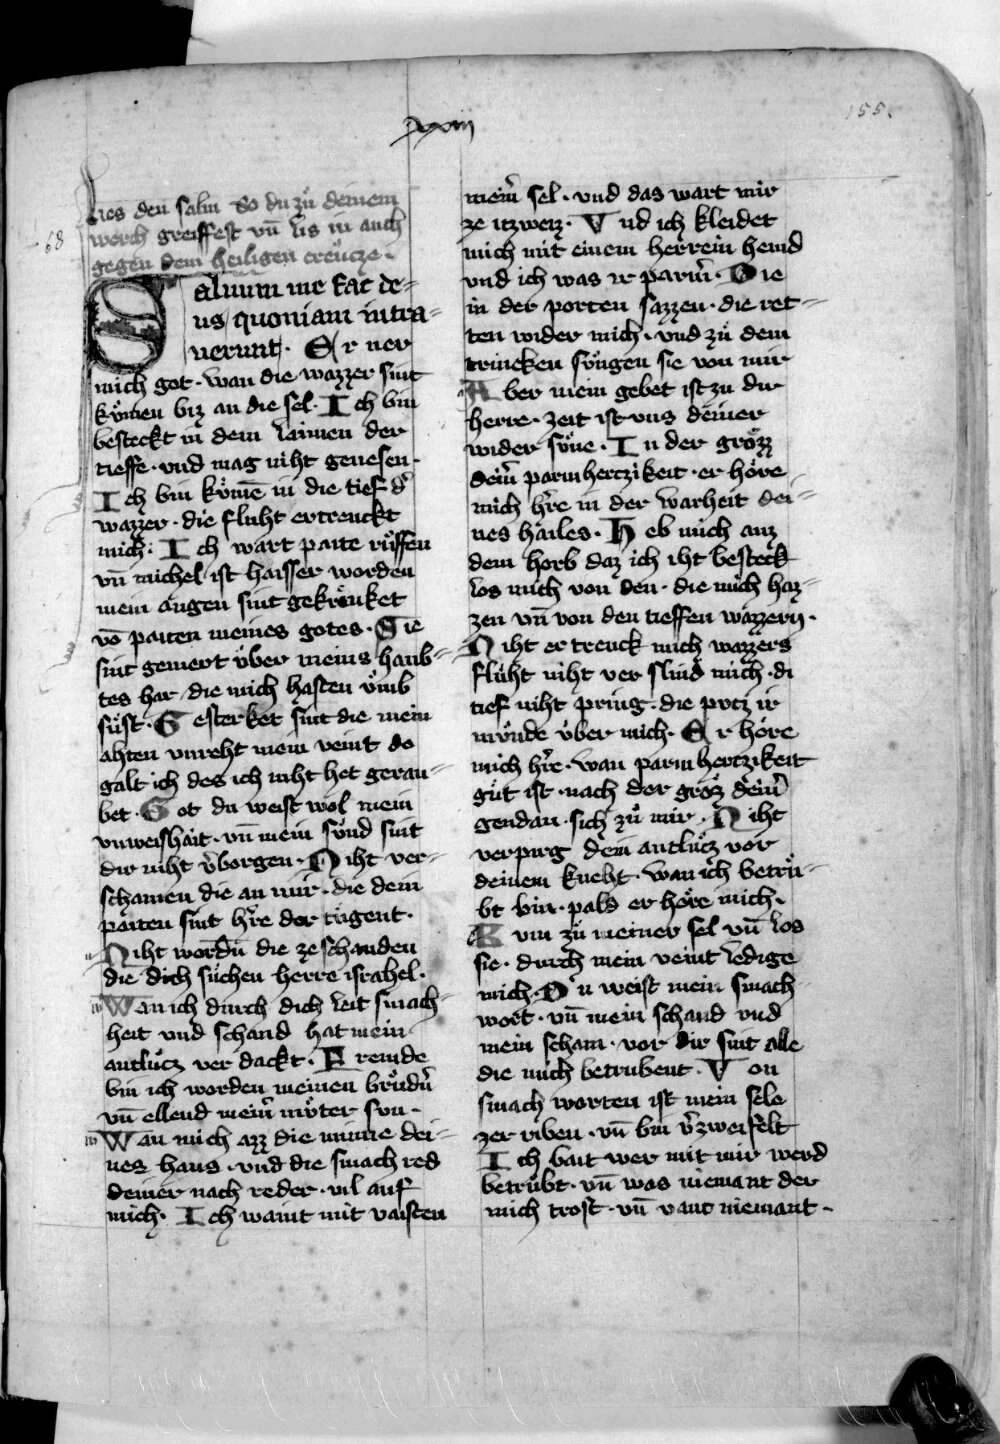 155.
lxviii
68
Lies den salm So du zů deinem
werch greiffest vn̄ lis in auch
gegen dem heiligen creücze.
Saluum me fac de-
us quoniam intra-
uerunt. Er ner
mich got. wan die wazzer sint
kömen biz an die sel. Ich bin
besteckt in dem laimen der
tieffe. vnd mag niht genesen.
Ich bin kömē in die tief dˢ
wazzer. die fluht ertrenckt
mich. Ich wart paite rüffen
vn̄ michel ist haisser worden
mein augen sint gekrenket
vō paiten meines gotes. Sie
sint gemert über meins haub-
tes har die mich hasten vmb
süst. Gesterket sint die mein
ahten vnreht mein veint do
galt ich des ich niht het gerau-
bet. Got du weist wol mein
vnweishait. vn̄ mein sünd sint
dir niht vˢborgen. Niht ver-
schamen die an mir. die dein
paiten sint hˢre der tugent.
Niht wordn̄ die ze schanden
die dich süchen herre israhel.
Wan ich durch dich leit smach-
heit vnd schand hat mein
antlücz ver dackt. Fremde
bin ich worden meinen brüdˢn
vn̄ ellend meinˢ müter sun.
Wan mich azz die minne dei-
nes haus. vnd die smach red
deiner nach reder. vil auf
mich. Ich waint mit vaisten
meinˢ sel. vnd das wart mir
ze itzweiz. Vnd ich kleidet
mich mit einem herrein hemd
vnd ich was ir parmˢ. Die
in der porten sazzen. die ret-
ten wider mich. vnd zü dem
trincken süngen sie von mir
Aber mein gebet ist zu dir
herre. zeit ist vns deiner
wider süne. In der grözz
deinˢ parmhertzikeit. er höre
mich hˢre in der warheit dei-
nes hailes. Heb mich auz
dem horb daz ich iht besteck
los mich von den. die mich haz-
zen vn̄ von den tieffen wazzern.
Niht ertrenck mich wazzers
flüht niht ver slind mich. di
tief niht pring. die putz ir
münde über mich. Er höre
mich hˢre. wan parmhertzikeit
güt ist. nach der gröz deinˢ
gendan. sich zü mir. Niht
verpirg dein antlücz vor
deinem kneht. wan ich betrü-
bt bin. pald er höre mich.
Kum zü meiner sel vn̄ los
sie. durch mein veint ledige
mich. Du weist mein smach-
wort. vn̄ mein schand vnd
mein scham. vor dir sint alle
die mich betrubent. Von
smach worten ist mein sele
zer riben. vn̄ bin vˢzweifelt
Ich bait wer mit mir werd
betrübt. vn̄ was niemant der
mich trost. vn̄ vant niemant.